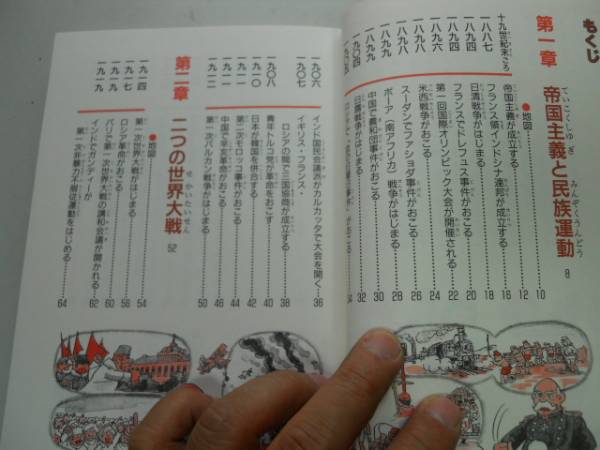 もくじ
第一章 帝国主義と民族運動 8
●地図 10
十九世紀末ごろ 帝国主義が成立する 12
一八八七 フランス領インドシナ連邦が成立する 16
一八九四 日清戦争がはじまる 18
一八九四 フランスでドレフュス事件がおこる 20
一八九六 第一回国際オリンピック大会が開催される 22
一八九八 米西戦争がおこる 24
一八九八 スーダンでファショダ事件がおこる 26
一八九九 ボーア（南アフリカ）戦争がはじまる 28
一八九九 中国で義和団事件がおこる 30
一九〇四 日露戦争がおこる 32
一九〇六 インド国民会議派がカルカッタで大会を開く 36
一九〇七 イギリス・フランス・
ロシアの間で三国協商が成立する 38
一九〇八 青年トルコ党が革命をおこす 40
一九一〇 日本が韓国を併合する 42
一九一一 第二次モロッコ事件がおこる 44
一九一一 中国で辛亥革命がおこる 46
一九一二 第一次バルカン戦争がはじまる 50
第二章 二つの世界大戦 52
せかいたいせん
●地図 54
一九一四 第一次世界大戦がはじまる 56
一九一七 ロシア革命がおこる 58
一九一九 パリで第一次世界大戦の講和会議が開かれる 60
一九一九 インドでガンディーが 62
第一次非暴力不服従運動をはじめる 64